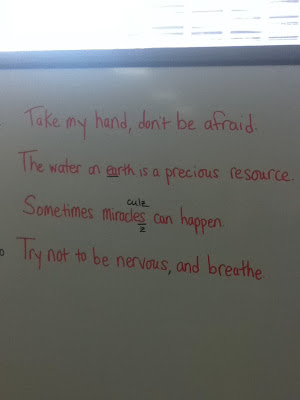 Take my hand, don't be afraid.
The water on earth is a precious resource.
culz
Sometimes miracles can happen.
z
Try not to be nervous, and breathe.